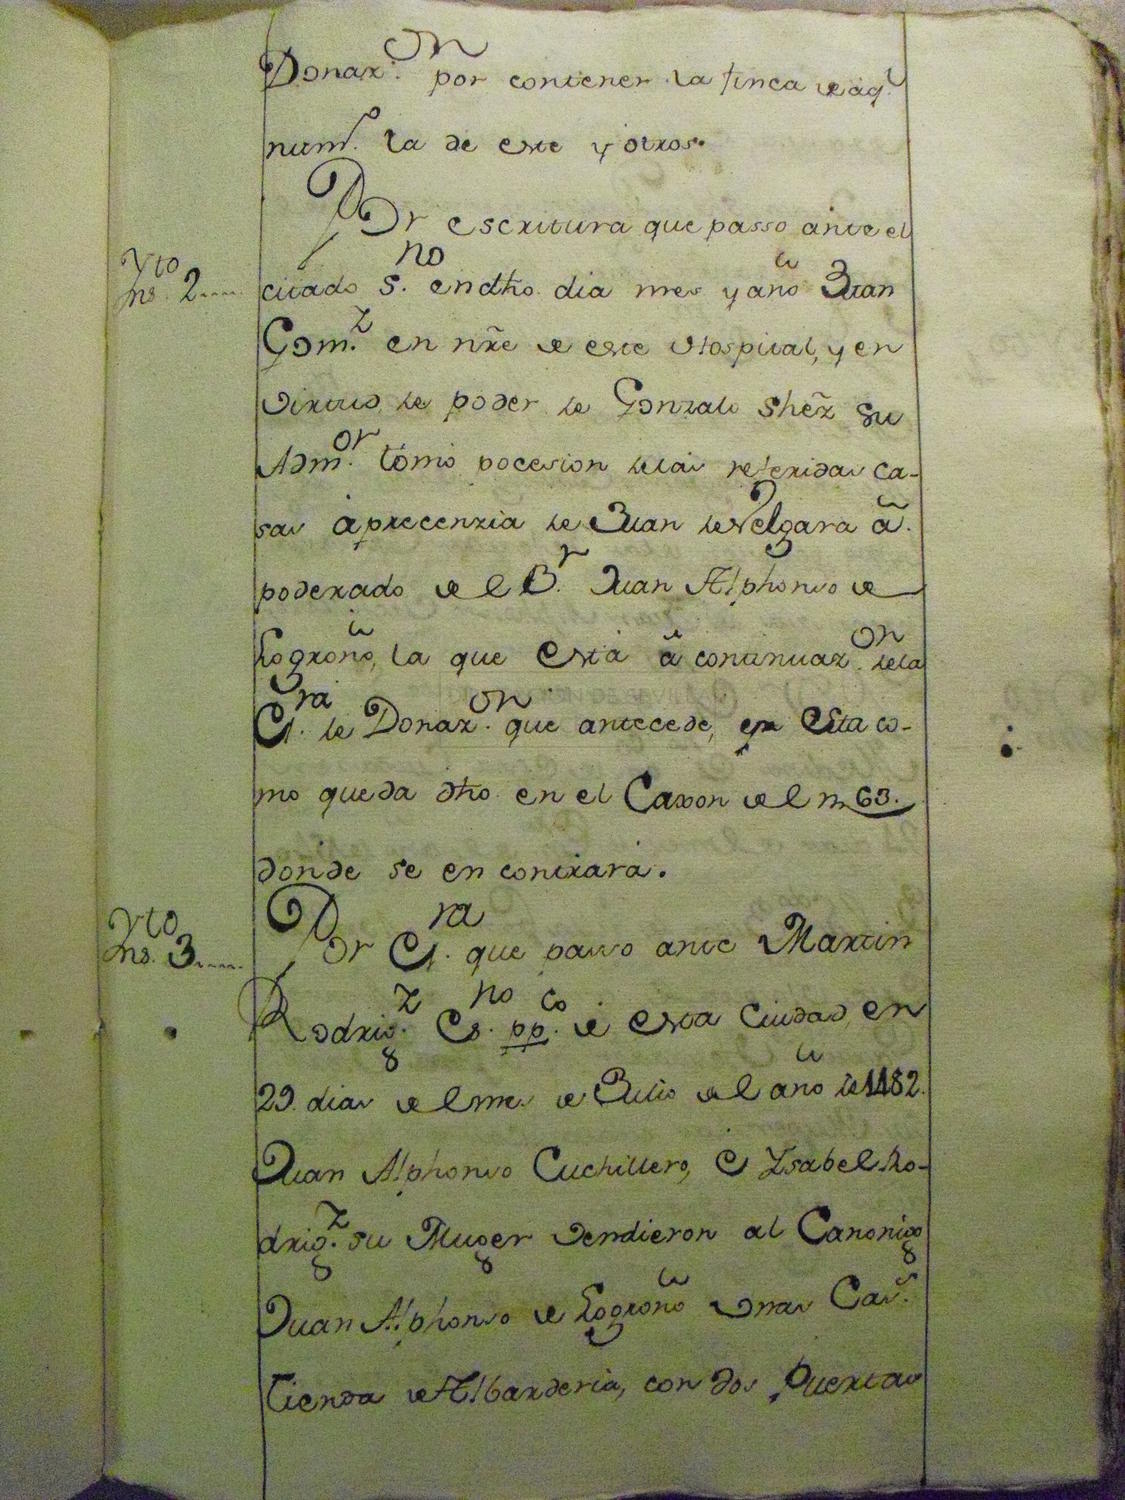 Donaz.on por contener la finca de aq.l
num.o la de este y otros.
Por escritura que passo ante el
Yto
ns. 2....
citado S.no en dho. dia mes y año Juan
Gom.z en nr̃e de este Hospital, y en
virtud de poder de Gonzalo Shẽz su
Adm.or tomó pocesion de las referidas ca-
sas á precenzia de Juan de Velgara ã.
poderado de el B.r Juan Alphonso de
Logroño, la que está á continuaz.on de la
Es.ra de Donaz.on que antecede, y esta co-
mo queda dho en el Caxon de el n. 63.
donde se encontrará.
Yto
ns. 3....
Por Es.ra que passo ante Martin
Rodrig.z Es.no pp.co de esta Ciudad en
29. dias de el mes de Julio de el año de 1482.
Juan Alphonso Cuchillero, e Ysabel Ro-
drig.z su Muger vendieron al Canonigo
Juan Alphonso de Logroño unas Cas.s
tienda de Albarderia, con dos Puertas